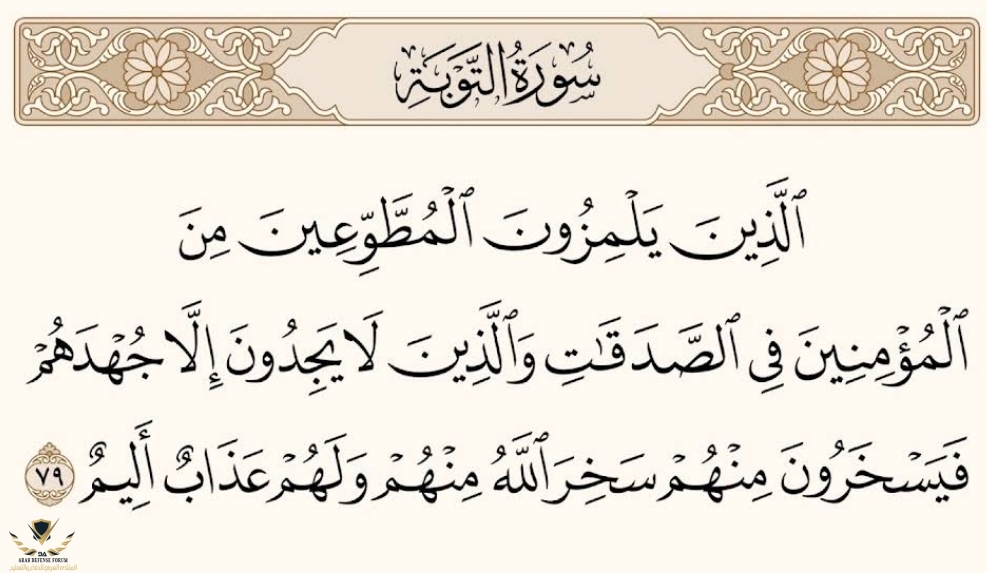 سُورَةُ التَّوْبَةِ
ٱلَّذِينَ يَلْمِزُونَ ٱلْمُطَّوِّعِينَ مِنَ
ٱلْمُؤْمِنِينَ فِى ٱلصَّدَقَٰتِ وَٱلَّذِينَ لَا يَجِدُونَ إِلَّا جُهْدَهُمْ
فَيَسْخَرُونَ مِنْهُمْ سَخِرَ ٱللَّهُ مِنْهُمْ وَلَهُمْ عَذَابٌ أَلِيمٌ ٧٩
DA
ARAB DEFENSE FORUM